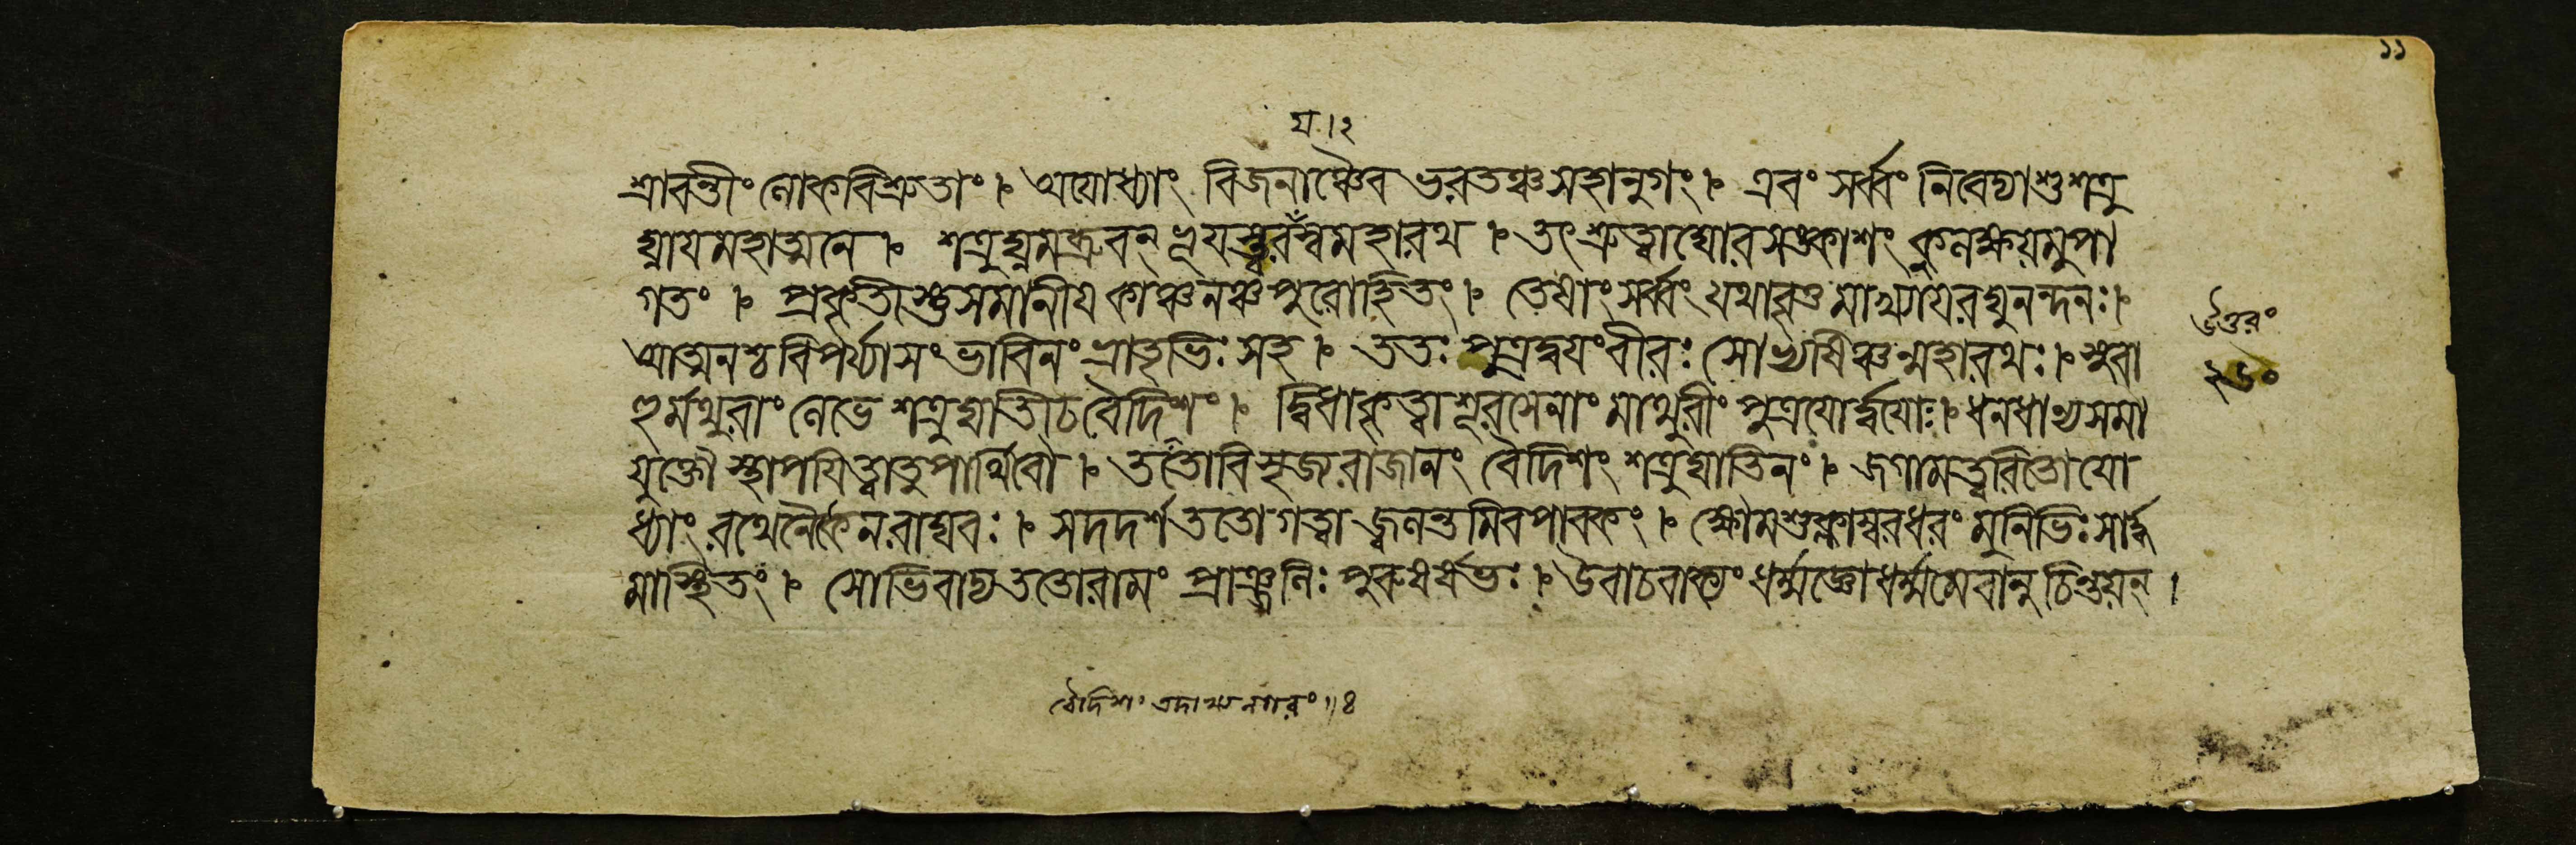 ১১
য।২
শ্রাবন্তীং লোকবিশ্রুতাং। অযোধ্যাং বিজনাঞ্চৈব ভরতঞ্চসহানুগং। এবং সর্ব্বং নিবেদ্যাশুশত্রু
ঘ্নাযমহাত্মনে। শত্রুঘ্নমব্রুবন্ ভূযস্ত্বরঁস্বমহারথ। তৎ শ্রুত্বাঘোরসঙ্কাশং কুলক্ষয়মুপা
গতং। প্রকৃতীস্তুসমানীয কাঞ্চনঞ্চপুরোহিতং। তেষাং সর্ব্বং যথাবৃত্তমাখ্যাযরঘুনন্দনঃ।
আত্মনশ্চবিপর্য্যাসং ভাবিনং ভ্রাতৃভিঃ সহ। ততঃ পুত্রদ্বযংবীরঃ সোভ্যষিঞ্চন্মহারথঃ। সুবা
হুর্মথুরাং লেভে শত্রুঘাতীচবৈদিশং। দ্বিধাকৃত্বাশূরসেনাং মাথুরীং পুত্রযোর্দ্বযোঃ। ধনধান্যসমা
যুক্তৌ স্থাপযিত্বাতুপার্থিবৌ। ততোবিসৃজ্যরাজানং বৈদিশং শত্রুঘাতিনং। জগামত্বরিতোযো
ধ্যাং রথেনৈকেনরাঘবঃ। সদদর্শততোগত্বা জ্বলন্তমিবপাবকং। ক্ষৌমশুক্লাম্বরধরং মুনিভিঃ সার্দ্ধ
মাস্থিতং। সোভিবাদ্যততোরামং প্রাঞ্জলিঃ পুরুষর্ষভঃ। উবাচবাক্যং ধর্ম্মজ্ঞোধর্ম্মমেবানুচিন্তয়ন্।
উত্তরং
২৬০
বৈদিশং এদাখ্য নগরং॥৪